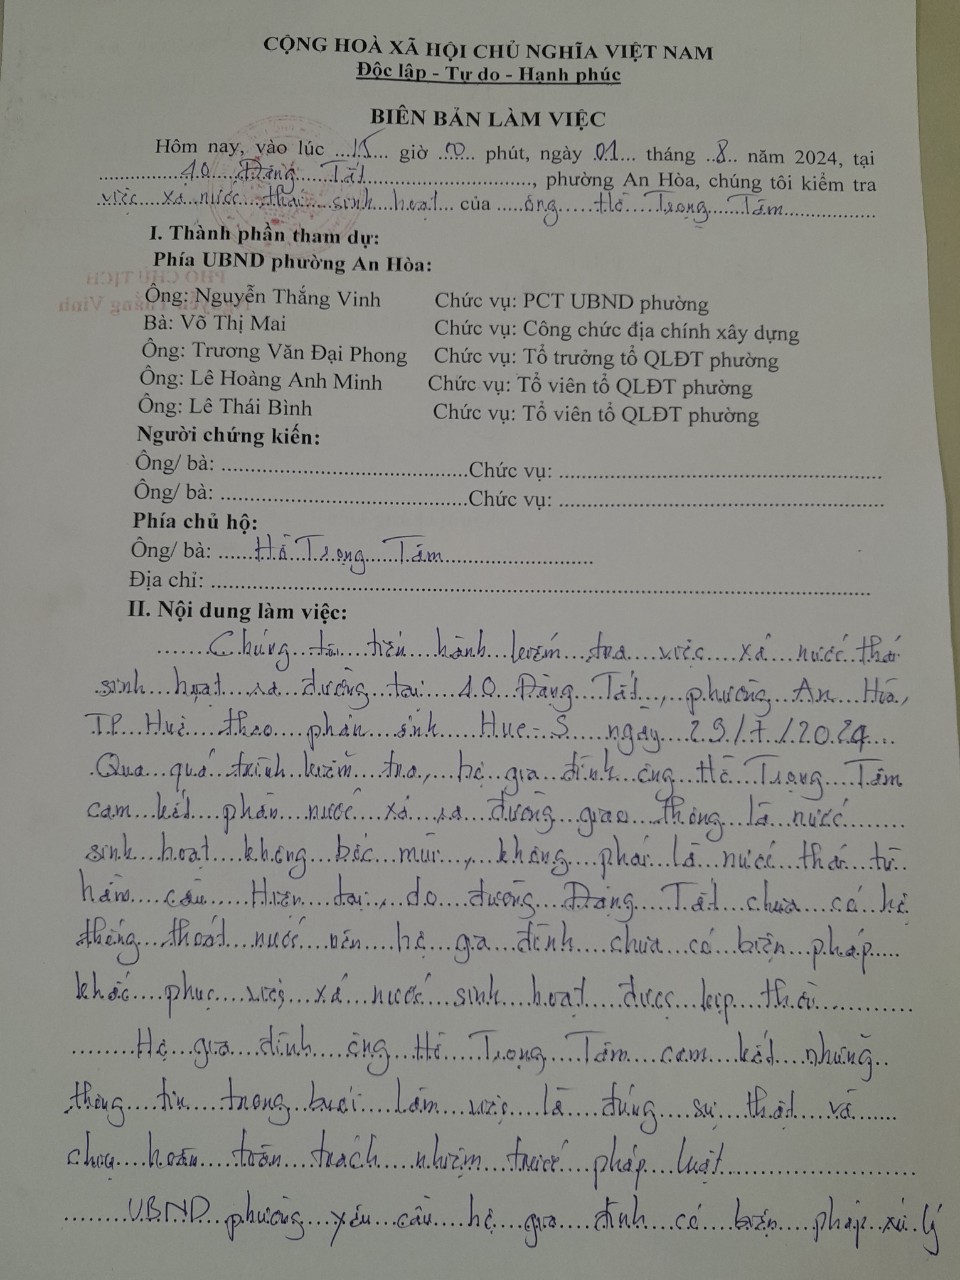 CỘNG HOÀ XÃ HỘI CHỦ NGHĨA VIỆT NAM
Độc lập - Tự do - Hạnh phúc
BIÊN BẢN LÀM VIỆC
Hôm nay, vào lúc ...15... giờ ..00.. phút, ngày 01... tháng ..8.. năm 2024, tại
10 Đặng Tất, phường An Hòa, chúng tôi kiểm tra
việc xả nước thải sinh hoạt của ông Hồ Trọng Tâm
I. Thành phần tham dự:
Phía UBND phường An Hòa:
PHÓ CHỦ TỊCH
Nguyễn Thắng Vinh
Ông: Nguyễn Thắng Vinh Chức vụ: PCT UBND phường
Bà: Võ Thị Mai Chức vụ: Công chức địa chính xây dựng
Ông: Trương Văn Đại Phong Chức vụ: Tổ trưởng tổ QLĐT phường
Ông: Lê Hoàng Anh Minh Chức vụ: Tổ viên tổ QLĐT phường
Ông: Lê Thái Bình Chức vụ: Tổ viên tổ QLĐT phường
Người chứng kiến:
Ông/ bà: ........ Chức vụ: ........
Ông/ bà: ........ Chức vụ: ........
Phía chủ hộ:
Ông/ bà: Hồ Trọng Tâm
Địa chỉ: ........
II. Nội dung làm việc:
Chúng tôi tiến hành kiểm tra việc xả nước thải
sinh hoạt ra đường tại 10 Đặng Tất, phường An Hòa,
TP Huế theo phản ánh Hue-S ngày 29/7/2024.
Qua quá trình kiểm tra, hộ gia đình ông Hồ Trọng Tâm
cam kết phần nước xả ra đường giao thông là nước
sinh hoạt không bốc mùi, không phải là nước thải từ
hầm cầu. Hiện tại, do đường Đặng Tất chưa có hệ
thống thoát nước nên hộ gia đình chưa có biện pháp
khắc phục việc xả nước sinh hoạt được kịp thời.
Hộ gia đình ông Hồ Trọng Tâm cam kết những
thông tin trong buổi làm việc là đúng sự thật và
chịu hoàn toàn trách nhiệm trước pháp luật.
UBND phường yêu cầu hộ gia đình có biện pháp xử lý